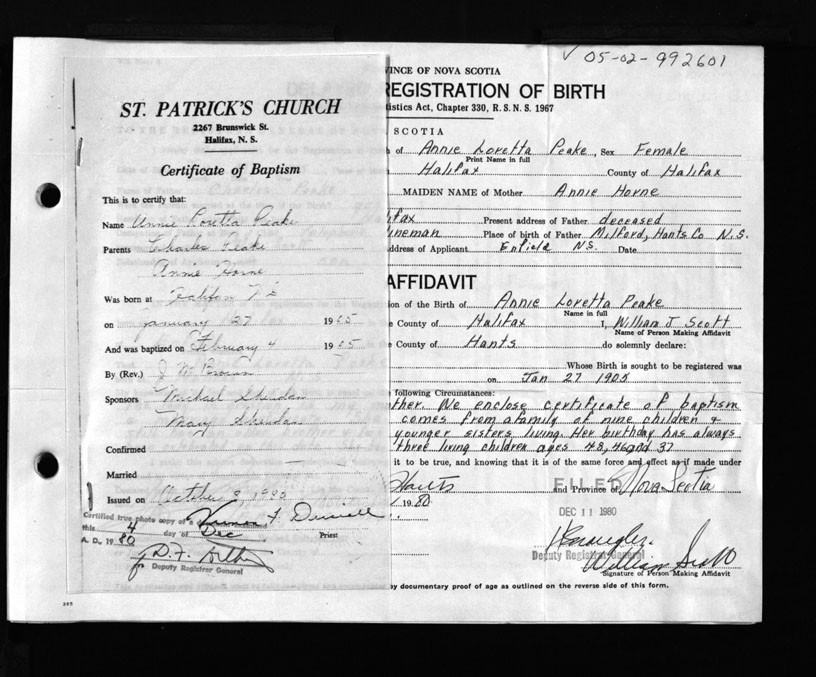 05-02-992601
ST. PATRICK'S CHURCH
2267 Brunswick St.
Halifax, N. S.
Certificate of Baptism
This is to certify that:
Name Annie Loretta Peake
Parents Charles Peake
Annie Horne
Was born at Halifax N S
on January 27 1905
And was baptized on February 4 1905
By (Rev.) J W Brown
Sponsors Michael Sheridan
Mary Sheridan
Confirmed
Married
Issued on October 3, 1980
Priest
Certified true photo copy of a
this 4 day of Dec
A. D., 1980
Deputy Registrar General
VINCE OF NOVA SCOTIA
REGISTRATION OF BIRTH
tistics Act, Chapter 330, R.S.N.S. 1967
SCOTIA
of Annie Loretta Peake, Sex Female
Print Name in full
Halifax County of Halifax
MAIDEN NAME of Mother Annie Horne
ifax Present address of Father deceased
ineman Place of birth of Father Milford, Hants Co N.S.
ddress of Applicant Enfield N.S. Date
AFFIDAVIT
tion of the Birth of Annie Loretta Peake
Name in full
e County of Halifax I, William J Scott
Name of Person Making Affidavit
e County of Hants do solemnly declare:
Whose Birth is sought to be registered was
on Jan 27 1905
following Circumstances:
ther. We enclose certificate of baptism
comes from a family of nine children &
younger sisters living. Her birthday has always
three living children ages 48, 46 and 37
it to be true, and knowing that it is of the same force and effect as if made under
Hants and Province of Nova Scotia
1980
FILED
DEC 11 1980
Deputy Registrar General
William Scott
Signature of Person Making Affidavit
by documentary proof of age as outlined on the reverse side of this form.